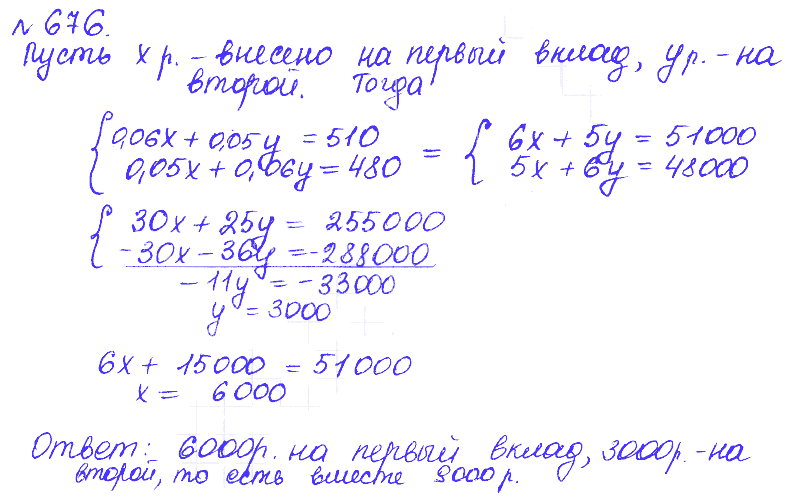 № 676.
Пусть x р. - внесено на первый вклад, y р. - на
второй. Тогда
{ 0,06x + 0,05y = 510 = { 6x + 5y = 51000
0,05x + 0,06y = 480 5x + 6y = 48000
{ 30x + 25y = 255000
-30x - 36y = -288000
-11y = -33000
y = 3000
6x + 15000 = 51000
x = 6000
Ответ: 6000р. на первый вклад, 3000р. - на
второй, то есть вместе 9000 р.